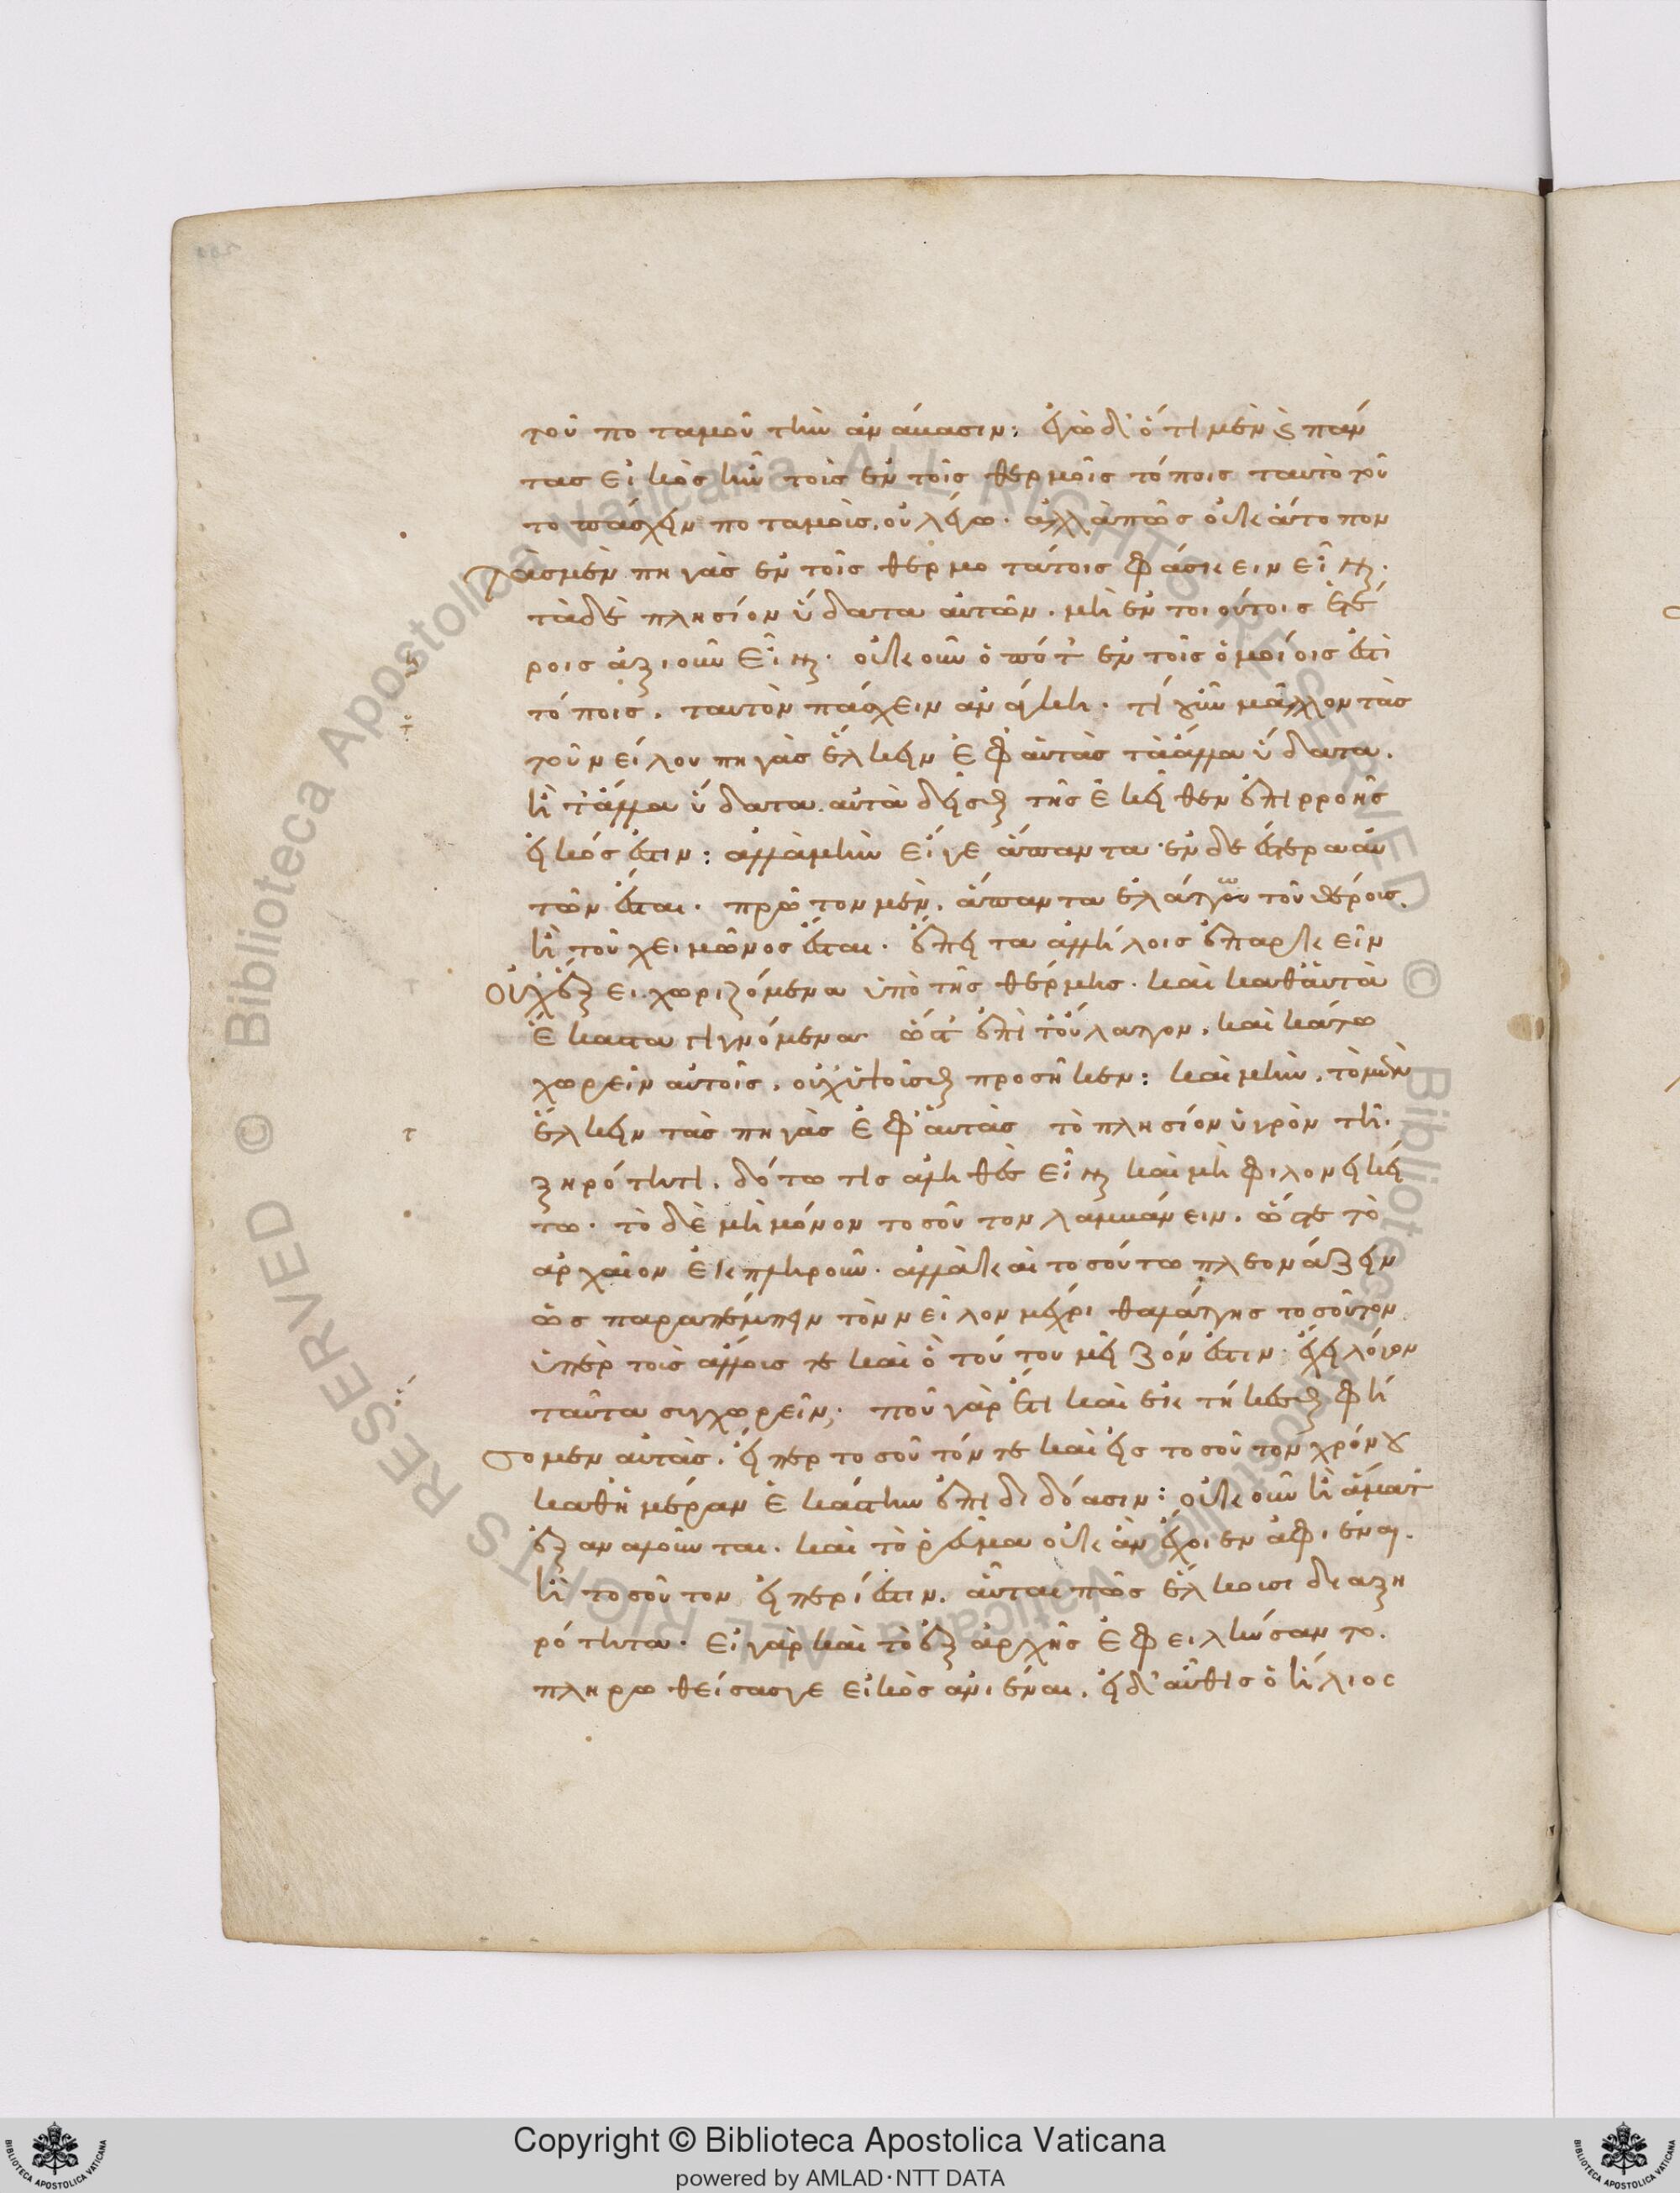 τοῦ ποταμοῦ τὴν ἀνάβασιν: ἐγὼ δ' ὅτι μὲν καὶ πάν
τας εἰκὸς ἦν τοὺς ἐν τοῖς θερμοῖς τόποις ταυτὸ τοῦ
το πάσχειν ποταμοὺς, οὐ λέγω. ἀλλὰ πῶς οὐκ ἄτοπον
τὰς μὲν πηγὰς ἐν τοῖς θερμοτάτοις φάσκειν εἶναι.
τὰ δὲ πλησίον ὕδατα αὐτῶν. μὴ ἐν τοιούτοις ἑτέ
ροις ἀξιοῦν εἶναι. οὐκοῦν ὁπότ' ἐν τοῖς ὁμοίοις ἐστὶ
τόποις. ταυτὸν πάσχειν ἀνάγκη. τί γοῦν μᾶλλον τὰς
τοῦ νείλου πηγὰς ἕλκειν ἐφ' αὑτὰς τὰ ἄλλα ὕδατα.
ἢ τἄλλα ὕδατα αὐτὰ δεῖσθαι τῆς ἐκεῖθεν ἐπιρροῆς
εἰκός ἐστιν: ἀλλὰ μὴν εἴγε ἅπαντα ἐνδεέστερα αὑ
τῶν ἔσται. πρῶτον μὲν, ἅπαντα ἐλάττω τοῦ θέρους
ἢ τοῦ χειμῶνος ἔσται. ἔπειτα ἀλλήλοις ἐπαρκεῖν
οὐχ ἕξει χωριζόμενα ὑπὸ τῆς θέρμης. καὶ καθ' αὑτὰ
ἕκαστα γιγνόμενα ὥστ' ἐπὶ τοὔλαττον. καὶ κάτω
χωρεῖν αὐτοῖς, οὐχ ὑψοῦσθαι προσῆκεν: καὶ μὴν, τὸ μὲν
ἕλκειν τὰς πηγὰς ἐφ' αὑτὰς τὸ πλησίον ὑγρὸν τῇ
ξηρότητι. δότω τις ἀληθὲς εἶναι καὶ μὴ φιλονεικεί
τω. τὸ δὲ μὴ μόνον τοσοῦτον λαμβάνειν. ὥστε τὸ
ἀρχαῖον ἐκπληροῦν. ἀλλὰ καὶ τοσούτω πλεονάζειν
ὡς παραπέμπειν τὸν νεῖλον μέχρι θαλάττης τοσοῦτον
ὑπὲρ τοὺς ἄλλους τε καὶ ὃ τούτου μεῖζόν ἐστιν. ἔχει λόγον
ταῦτα συγχωρεῖν; ποῦ γὰρ ἔτι καὶ ἐκτήκεσθαι φή
σομεν αὐτὰς. εἴπερ τοσοῦτόν τε καὶ εἰς τοσοῦτον χρόνου
καθ' ἡμέραν ἑκάστην ἐπιδιδόασιν: οὐκοῦν ἢ ἅμα τ'
ἐξαναλοῦνται. καὶ τὸ ῥεῦμα οὐκ ἂν ἔχοιεν ἀφιέναι.
ἢ τοσοῦτον εἰ περίεστιν. αὗται πῶς ἕλκουσι δια ξη
ρότητα. εἰ γὰρ καὶ τὸ ἐξ ἀρχῆς ἐφειλκύσαντο.
πληρωθείσας γε εἰκὸς ἀνιέναι. εἰ δ' αὖθις ὁ ἥλιος